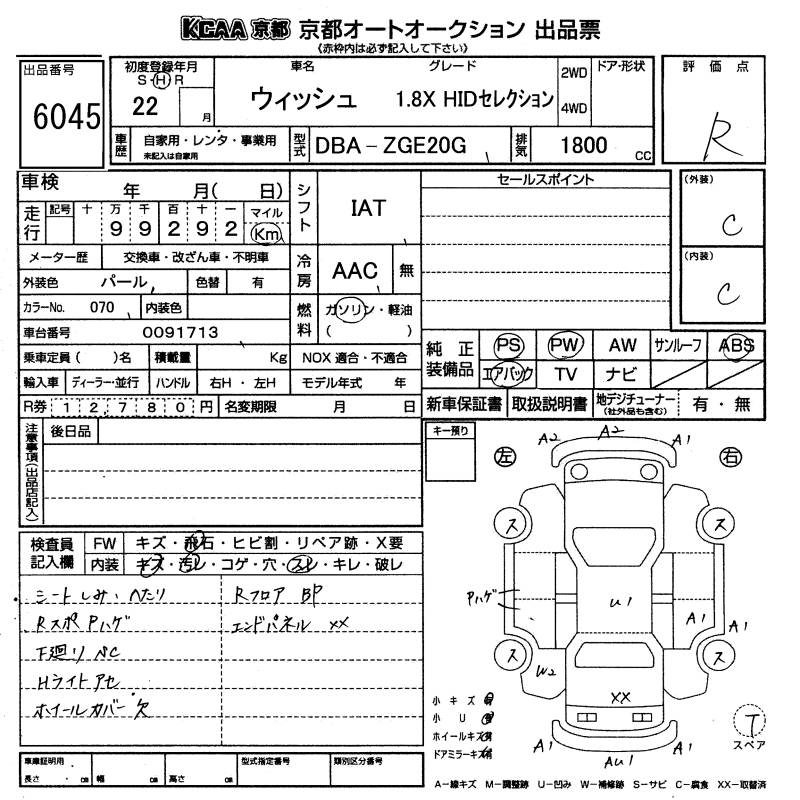 KCAA 京都 京都オートオークション 出品票
《赤枠内は必ず記入して下さい》
出品番号
6045
初度登録年月
S・H・R
22 月
車名
ウィッシュ
グレード
1.8X HIDセレクション
2WD
4WD
ドア・形状
評価点
R
車歴
自家用・レンタ・事業用
未記入は自家用
型式
DBA-ZGE20G
排気
1800 CC
車検 年 月( 日)
走行
記号 十 万 千 百 十 一 マイル
9 9 2 9 2 Km
メーター歴 交換車・改ざん車・不明車
外装色 パール 色替 有
カラーNo. 070 内装色
車台番号 0091713
乗車定員( )名 積載量 Kg
輸入車 ディーラー・並行 ハンドル 右H・左H
R券 12,780円 名変期限 月 日
シフト IAT
冷房 AAC 無
燃料 ガソリン・軽油
( )
NOX適合・不適合
モデル年式 年
セールスポイント
(外装)
C
(内装)
C
純正装備品
PS PW AW サンルーフ ABS
エアバック TV ナビ
新車保証書 取扱説明書 地デジチューナー(社外品も含む) 有・無
注意事項(出品店記入)
後日品
キー預り
検査員記入欄
FW キズ・飛石・ヒビ割・リペア跡・X要
内装 キズ・汚レ・コゲ・穴・スレ・キレ・破レ
シートしみ・へたり
RスポPハゲ
下廻りペC
Hライトアセ
ホイールカバー欠
Rフロア BP
エンドパネル XX
左
右
A2
A2
A1
ス
ス
Pハゲ
U1
A1
A1
ス
ス
W2
XX
A1
AU1
A1
小キズ 有
小U 有
ホイールキズ 有
ドアミラーキズ 有
T
スペア
車庫証明用
長さ ・ cm 幅 cm 高さ cm
型式指定番号
類別区分番号
A-線キズ M-調整跡 U-凹み W-補修跡 S-サビ C-腐食 XX-取替済